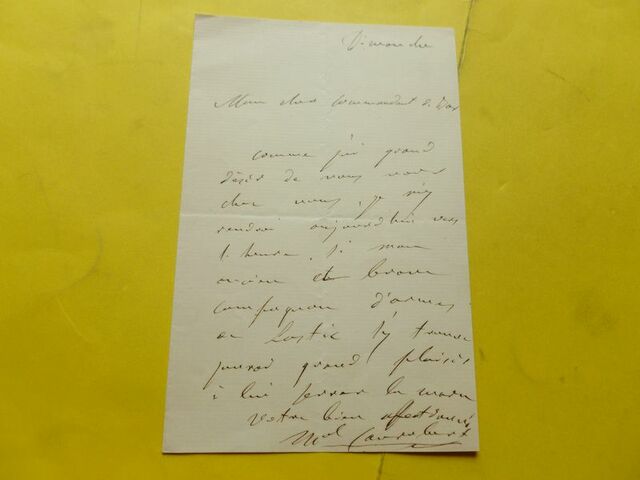 Dimanche
Mon cher Commandant
comme j'ai grand
désir de vous voir
chez vous, je m'y
rendrai aujourd'hui vers
1 heure. Si mon
ancien et brave
compagnon d'armes
de Lostic s'y trouve
j'aurai grand plaisir
à lui serrer la main
Votre bien affectionné
Mal Canrobert